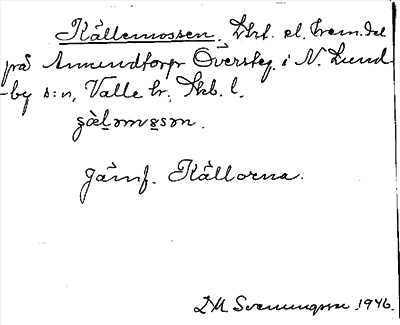 Källemossen. Skt. el. trom.del
på Amundtorps Översteg. i N. Lund-
-by s:n, Valle hr, Skb. l.
s̯ȁl̠əmɷs̠ən.
Jämf. Källorna.
DM Svenungsson 1946.